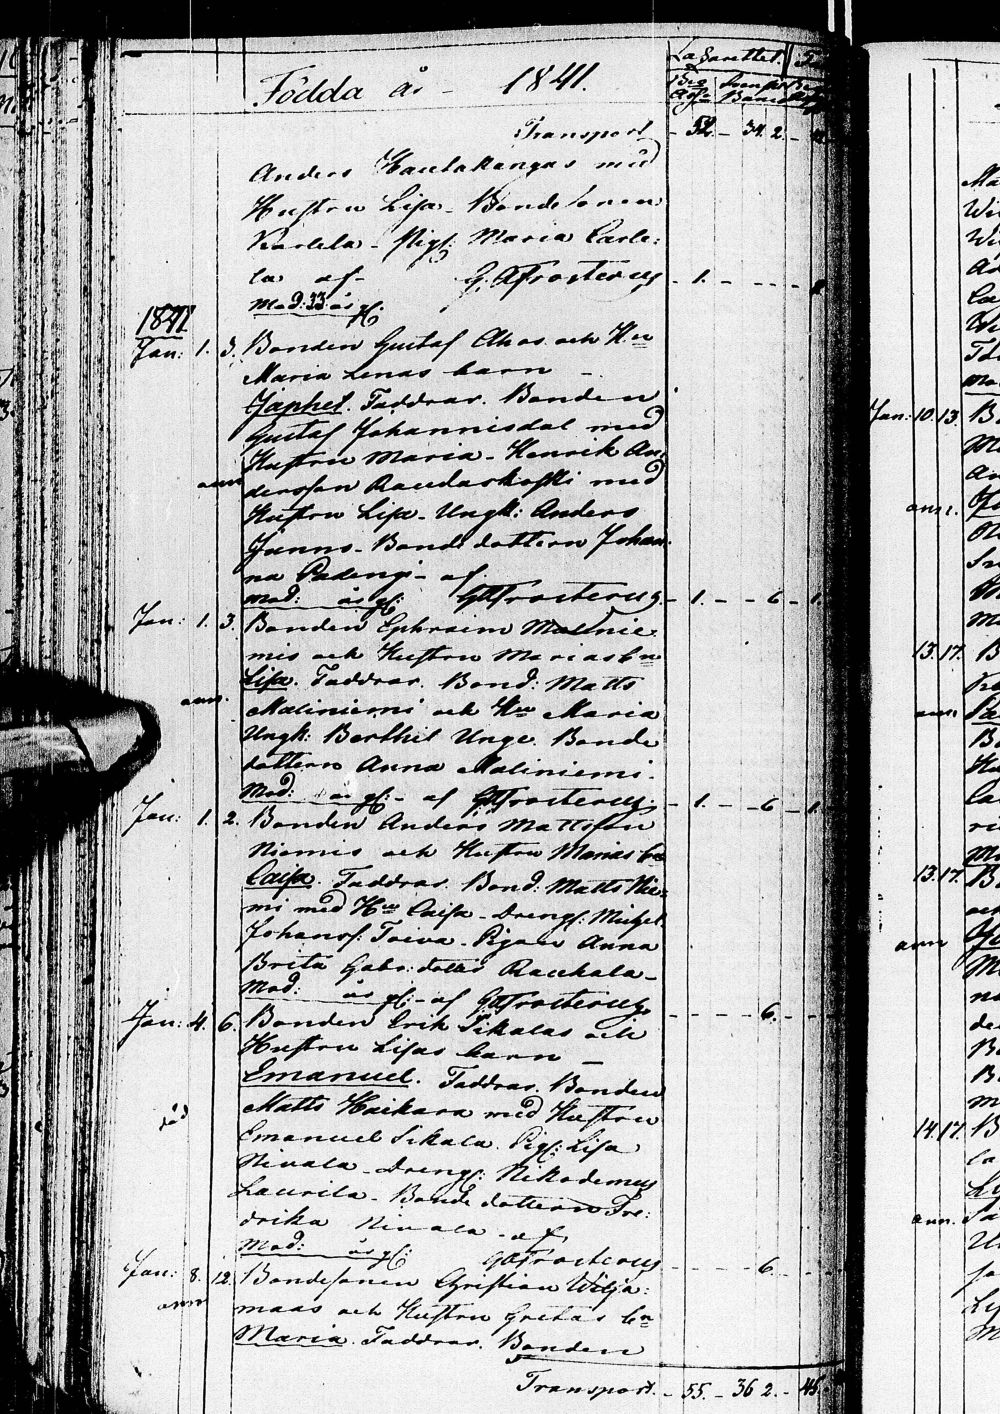 Födda år - 1841.
Lazarettet.
Transport - 52. - 34. 2. -
Anders Hautakangas med
Hustru Lisa - Bondesonen
Karlela - Pig: Maria Carle:
la af - G. A Frosterus - 1. - - - -
Mod: 33 år gl.
1841
Jan: 1. 3. Bonden Gustaf Ahos och Hu
Maria Lenas barn -
Japhet. Faddrar. Bonden
Gustaf Johannisdal med
Hustru Maria - Henrik An
ann dersson Raudaskoski med
Hustru Lisa - Ungk: Anders
Junns - Bondedottern Johan
na Padingi - af
Mod: år gl: GA Frosterus. - 1. - - 6 - 1.
Jan: 1. 3. Bonden Ephraim Malinie
mis och Hustru Marias bn
Lisa. Faddrar. Bond: Matts
ann. Maliniemi och Hu Maria
Ungk: Berthil Unge. Bonde
dottern Anna Maliniemi.
Mod: år gl: - af GA Frosterus. - 1. - - 6 - 1.
Jan: 1. 2. Bonden Anders Mattsson
Niemis och Hustru Marias bn
Caisa. Faddrar. Bond: Matts Nie:
mi med Hu Caisa - Drengs: Michel
Johanss: Toiva - Pigan Anna
Brita Gabr: dotter Raukala -
Mod: år gl: - af GA Frosterus. - - - - 6. - - -
Jan: 4. 6. Bonden Erik Sikalas och
Hustru Lisas barn -
Emanuel. Faddrar. Bonden
Matts Haikara med Hustru
död
Emanuel Sikala. Pig: Lisa
Nivala - Dreng: Nikodemus
Laurila - Bonde dottern Fre:
drika Nivala - af
Mod: år gl: GA Frosterus - - - - 6. - - -
Jan: 8. 12. Bondesonen Christian Wilja:
ann maas och Hustru Gretas bn
Maria. Faddrar. Bonden
Transport. - 55. - 36 2. - 45.
Jan: 10. 13.
ann.
13. 17.
ann.
13. 17.
ann
14. 17.
ann.